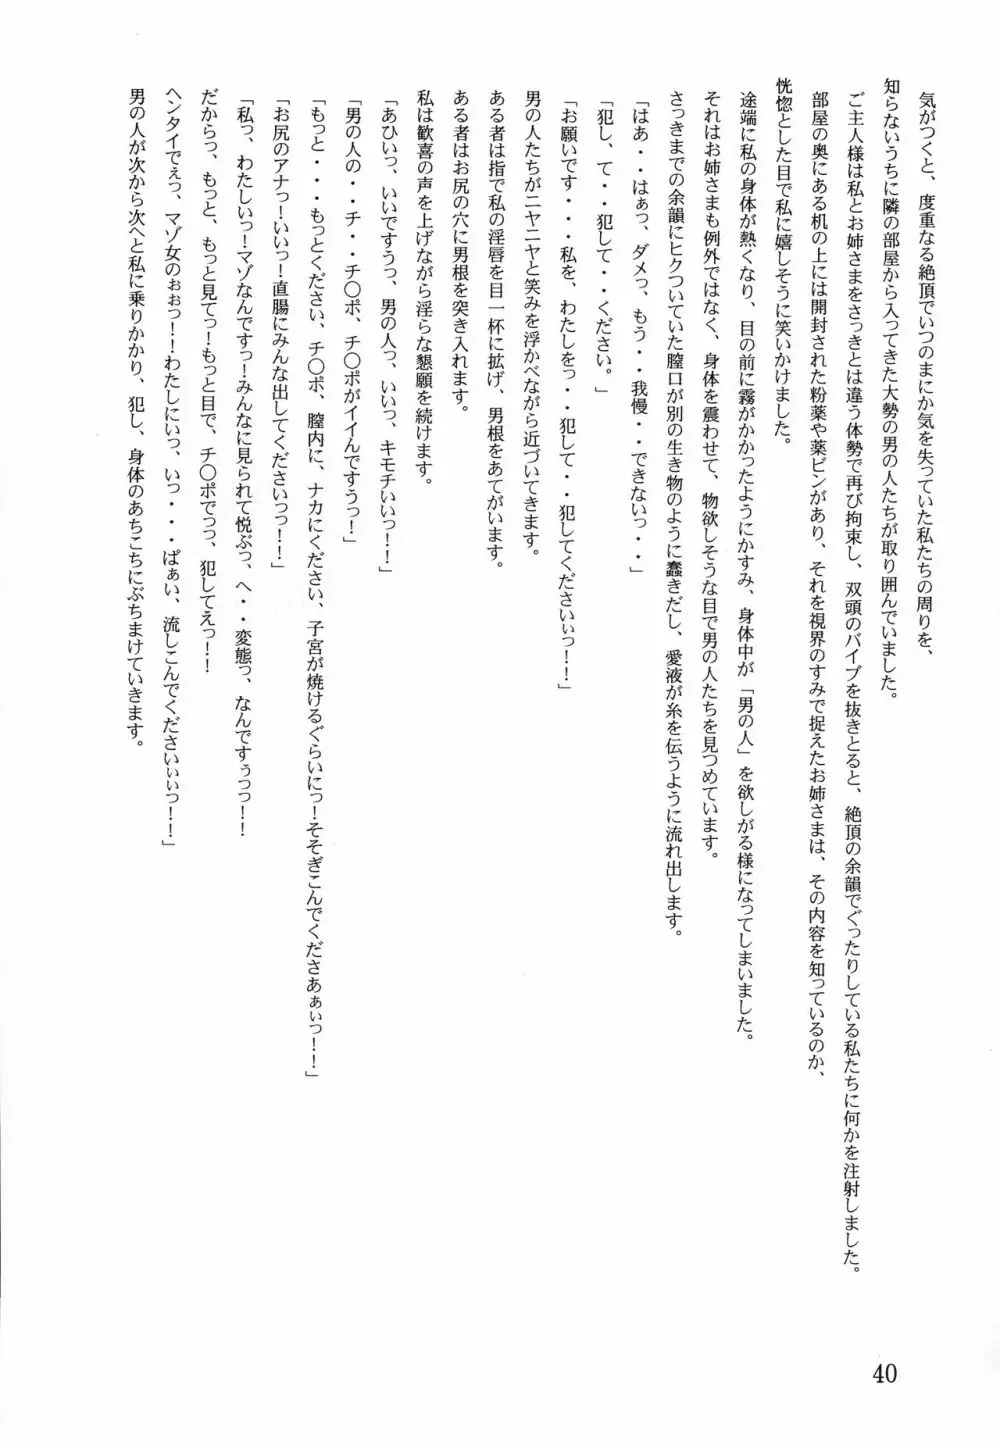 気がつくと、度重なる絶頂でいつのまにか気を失っていた私たちの周りを、
知らないうちに隣の部屋から入ってきた大勢の男の人たちが取り囲んでいました。
ご主人様は私とお姉さまをさっきとは違う体勢で再び拘束し、双頭のバイブを抜きとると、絶頂の余韻でぐったりしている私たちに何かを注射しました。
部屋の奥にある机の上には開封された粉薬や薬ビンがあり、それを視界のすみで捉えたお姉さまは、その内容を知っているのか、
恍惚とした目で私に嬉しそうに笑いかけました。
途端に私の身体が熱くなり、目の前に霧がかかったようにかすみ、身体中が「男の人」を欲しがる様になってしまいました。
それはお姉さまも例外ではなく、身体を震わせて、物欲しそうな目で男の人たちを見つめています。
さっきまでの余韻にヒクついていた膣口が別の生き物のように蠢きだし、愛液が糸を伝うように流れ出します。
「はあ・・はぁっ、ダメっ、もう・・我慢・・できないっ・・」
「犯し、て・・犯して・・ください。」
「お願いです・・・私を、わたしをっ・・犯して・・犯してくださいぃっ！！」
男の人たちがニヤニヤと笑みを浮かべながら近づいてきます。
ある者は指で私の淫唇を目一杯に拡げ、男根をあてがいます。
ある者はお尻の穴に男根を突き入れます。
私は歓喜の声を上げながら淫らな懇願を続けます。
「あひいっ、いいですうっ、男の人っ、いいっ、キモチいいっ！！」
「男の人の・・チ・・チ〇ポ、チ〇ポがイイんですうっ！」
「もっと・・・もっとください、チ〇ポ、膣内に、ナカにください、子宮が焼けるぐらいにっ！そそぎこんでくださあぁぃっ！！」
「お尻のアナっ！いいっ！直腸にみんな出してくださいっっ！！」
「私っ、わたしいっ！マゾなんですっ！みんなに見られて悦ぶっ、へ・・変態っ、なんですぅっっ！！
だからっ、もっと、もっと見てっ！もっと目で、チ〇ポでっっ、犯してえっ！！
ヘンタイでぇっ、マゾ女のぉぉっ！！わたしにいっ、いっ・・・ぱぁい、流しこんでくださいぃぃっ！！」
男の人が次から次へと私に乗りかかり、犯し、身体のあちこちにぶちまけていきます。
40